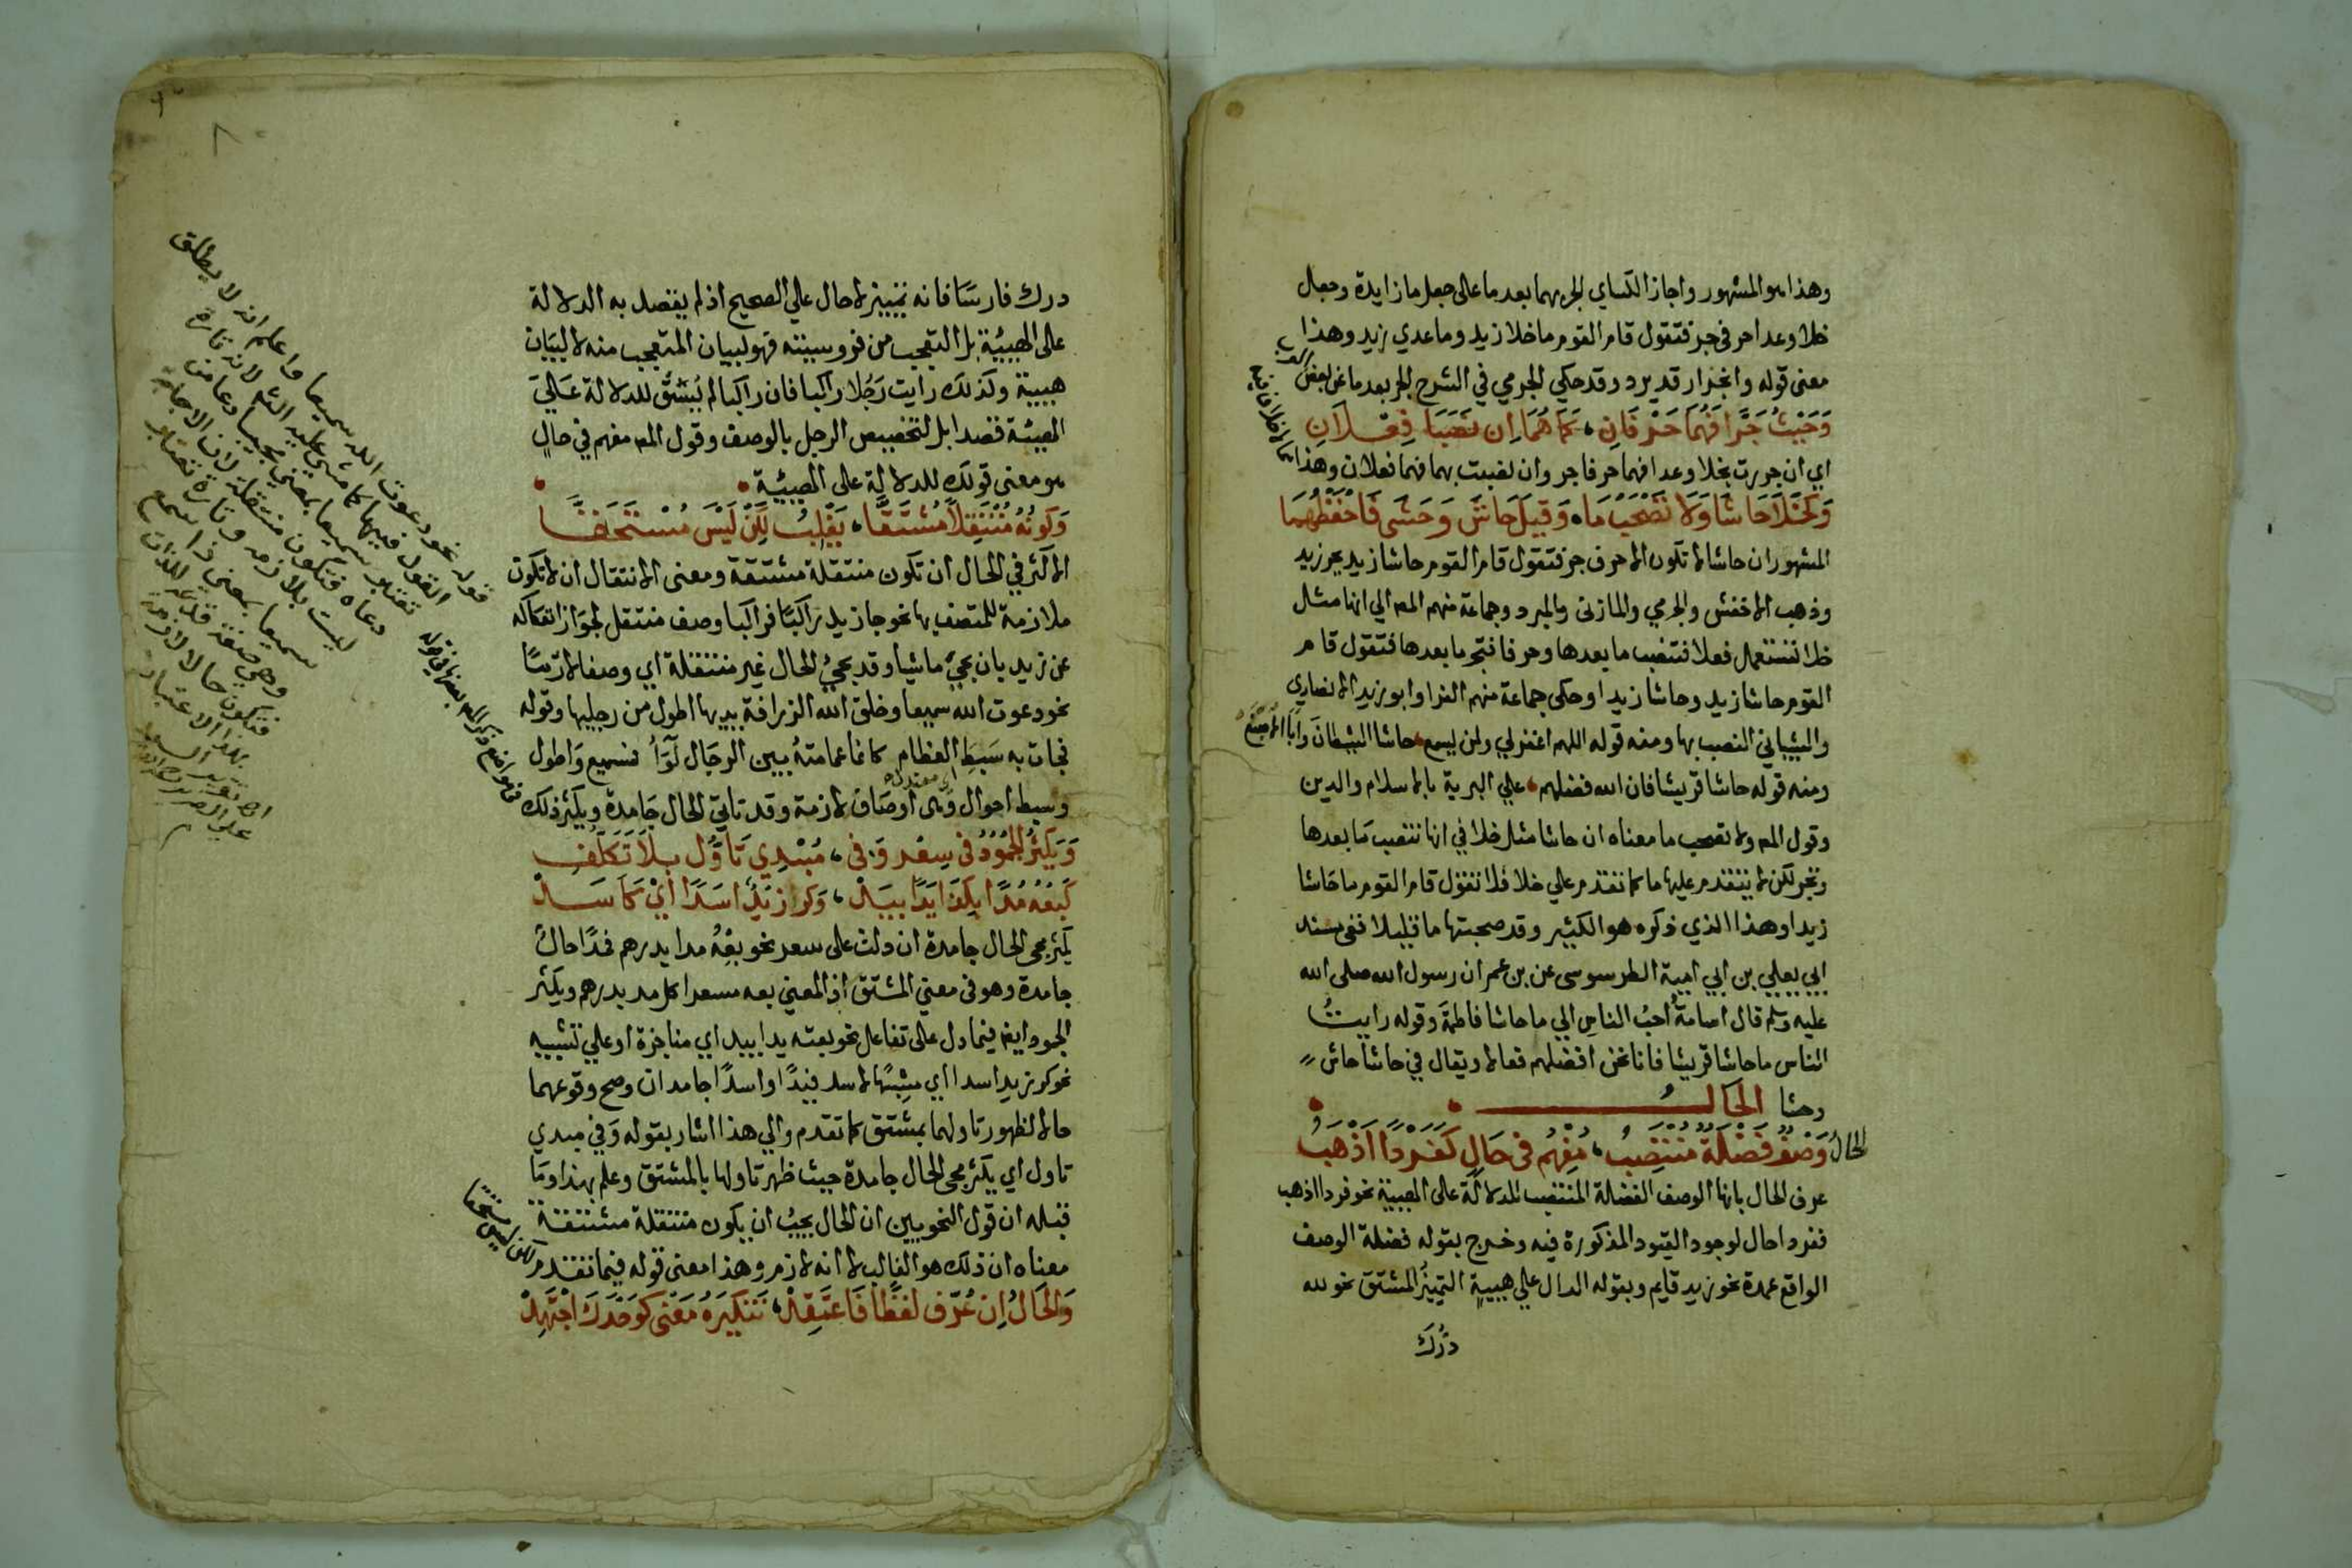 وهذا هو المشهور واجاز الكساي الجر بهما بعد ما على جعل ما زايدة وجعل
خلا وعدا حرفي جر فتقول قام القوم ما خلا زيد وما عدي زيد وهذا
معنى قوله وانجرار قد يرد وقد حكي الجرمي في الشرح الجر بعد ما عن بعض العرب
وَحَيْثُ جَرَّا فَهُمَا حَرْفَانِ، كَمَا هُمَا اِن نَصَبَا فِعْلَانِ
اي ان جررت بخلا وعدا فهما حرفا جر وان نصبت بهما فهما فعلان وهذا
وَكَخَلَا حَاشَا وَلَا تَصْحَبُ مَا، وَقِيلَ حَاشَ وَحَشَى فَاحْفَظْهُمَا
المشهور ان حاشا لا تكون الا حرف جر فتقول قام القوم حاشا زيد بجر زيد
وذهب الاخفش والجرمي والمازنى والمبرد وجماعة منهم المص الي انها مثل
خلا تستعمل فعلا فتنصب ما بعدها وحرفا فتجر ما بعدها فتقول قام
القوم حاشا زيد وحاشا زيدا وحكى جماعة منهم الفرا وابو زيد الانصاري
والشيباني النصب بها ومنه قوله اللهم اغفر لي ولمن يسمع حاشا الشيطانَ وَابَا الاصبغ
ومنه قوله حاشا قريشا فان الله فضلهم علي البرية بالاسلام والدين
وقول المص ولا تصحب ما معناه ان حاشا مثل خلا في انها تنصب ما بعدها
وتجر لكن لا يتقدم عليها ما كما تتقدم علي خلا فلا تقول قام القوم ما حاشا
زيدا وهذا الذي ذكره هو الكثير وقد صحبتها ما قليلا ففى مسند
ابي يعلي بن ابي امية الطرسوسى عن بن عمر ان رسول الله صلى الله
عليه وسلم قال اسامةُ احبُ الناسِ الي ما حاشا فاطمة وقوله رايتُ
الناس ما حاشا قريشا فانا نحن افضلهم فعالا ويقال في حاشا حاش
وحشا الحَالُ
الحالُ وَصْفٌ فَضْلَةٌ مُنْتَصِبُ، مُفْهِمُ فى حَالِ كَفَرْدًا اَذْهَبُ
عرف الحال بانها الوصف الفضلة المنتصب للدلالة على الهيية نحو فردا اذهب
ففردا حال لوجود القيود المذكورة فيه وخرج بقوله فضلة الوصف
الواقع عمدة نحو زيد قايم وبقوله الدال علي هييةٍ التمييزُ المشتق نحو لله
درك
درك فارسا فانه تمييز لا حال علي الصحيح اذ لم يقصد به الدلالة
على الهيئية بل التعجب من فروسيته فهو لبيان المتعجب منه لا لبيان
هييية وكذلك رايت رَجُلا راكبا فان راكبا لم يُسَق للدلالة عَلَي
الهيئة قصدا بل لتخصيص الرجل بالوصف وقول المص مفهم في حالٍ
هو معنى قولك للدلالة على الهيئية
وَكَونُهُ مُنْتَقِلاً مُشْتَقَّا، يَغْلِبُ لَكِنْ لَيْسَ مُسْتَحَقَّا
الاكثر في الحال ان تكون منتقلة مشتقة ومعنى الانتقال ان لا تكون
ملازمة للمتصف بها نحو جا زيد راكبًا فراكبا وصف منتقل لجواز انفكاكه
عن زيد بان يجيَ ماشيا وقد يجيُ الحال غير منتقلة اي وصفا لازما
نحو دعوت الله سميعا وخلق الله الزرافة يديها اطول من رجليها وقوله
فجات به سَبِطَ العظام كانما عمامتهُ بين الرجَال لوَاُ فسميع وَاطول
وسبط احوال وهى اوصَاف لازمة وقد تاتي الحال جَامدة ويكثر ذلك
وَيَكْثُرُ الجُمُودُ فى سِعْرٍ وَفى، مُبْدِي تَاَوُّلٍ بِلاَ تَكَلُّفِ
كَبِعْهُ مُدًّا بِكَذَا يَدًا بِيَدْ، وَكَرَّ زَيْدٌ اَسَدًا اَيْ كَاَسَدْ
يكثر مجى الحال جامدة ان دلت على سعر نحو بِعْهُ مدا بدرهم فمدًا حال
جامدة وهو فى معني المشتق اذ المعني بعه مسعرا كل مد بدرهم ويكثر
الجمود ايضا فيما دل على تفاعل نحو بعته يدا بيد اي مناجزة او علي تشبيه
نحو كر زيد اسدا اي مشبهًا لاسد فيدًا واسدًا جامدان وصح وقوعهما
حالا لظهور تاولهما بمشتق كما تقدم والي هذا اشار بقوله وَفي مبدي
تاول اي يكثر مجى الحال جامدة حيث ظهر تاولها بالمشتق وعلم بهذا وَمَا
قبله ان قول النحويين ان الحال يجبُ ان يكون منتقلة مشتقة
معناه ان ذلك هو الغالب لا انه لازم وهذا معنى قوله فيما تقدم لكن ليس مستحقا
وَالْحَالُ اِن عُرِّفَ لَفْظًا فَاعْتَقِدْ، تَنْكِيَرهُ مَعْنى كوَحْدَكَ اجْتَهِدْ
قوله نحو دعوت الله سميعا واعلم انه لا يطلق
القول فيها كما مشى عليه الشه لانه تارة
تفسر سميعا بمعنى مجيبا دعا من
دعاه فتكون منتقلة لان الاجابة
ليست بلازمه وتارة تفسر
سميعا بمعنى ذا سمع
وهي صفة للذات
فتكون حالا لازمة
بهذا الاعتبار